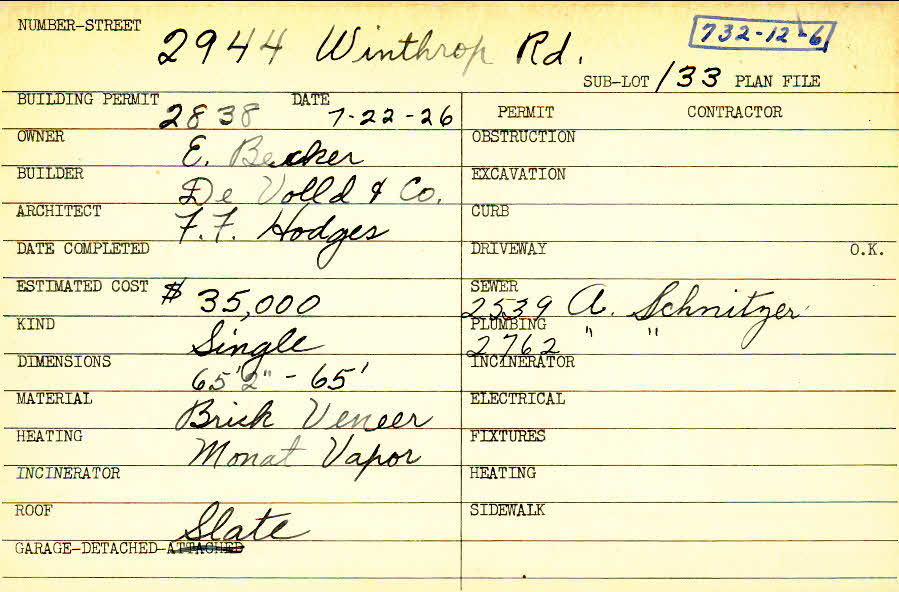 NUMBER-STREET 2944 Winthrop Rd. 732-12-6
SUB-LOT 133 PLAN FILE
BUILDING PERMIT 2838 DATE 7-22-26
OWNER E. Becker
BUILDER De Volld & Co.
ARCHITECT F. F. Hodges
DATE COMPLETED
ESTIMATED COST $35,000
KIND Single
DIMENSIONS 65'2" - 65'
MATERIAL Brick Veneer
HEATING Monat Vapor
INCINERATOR
ROOF Slate
GARAGE-DETACHED-ATTACHED
PERMIT CONTRACTOR
OBSTRUCTION
EXCAVATION
CURB
DRIVEWAY O.K.
SEWER 2539 A. Schnitzer
PLUMBING 2762 " "
INCINERATOR
ELECTRICAL
FIXTURES
HEATING
SIDEWALK